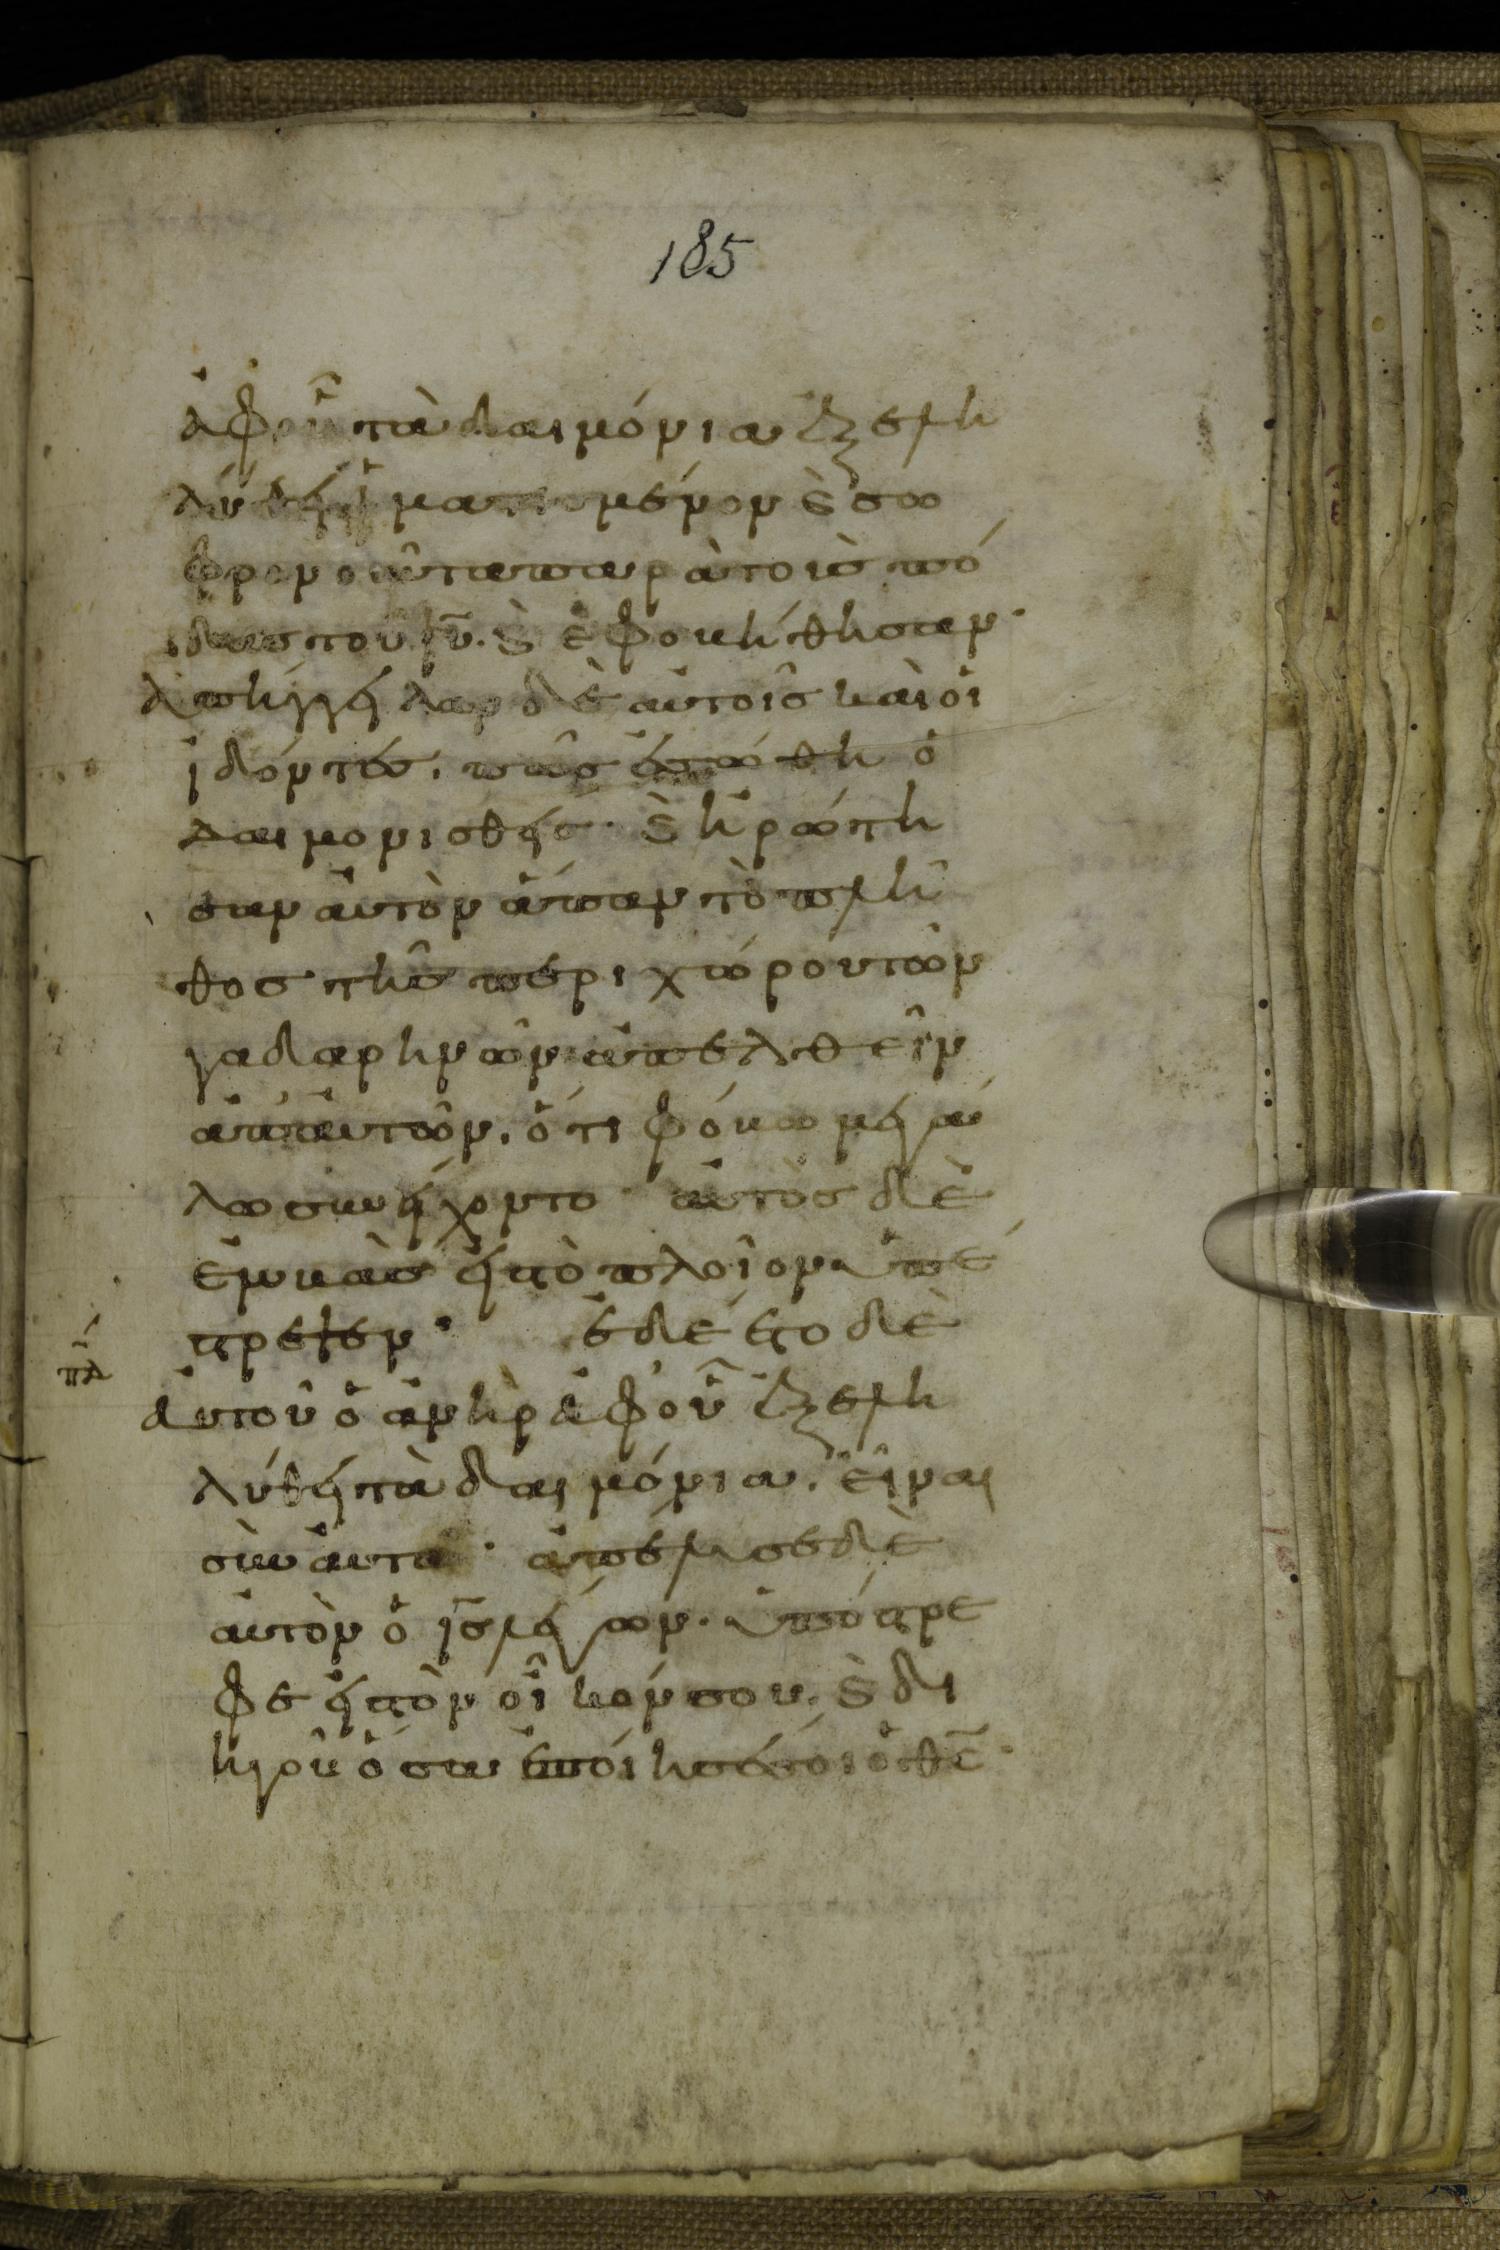 185
ἀφ οὗ τὰ δαιμόνια ἐξελη
λύθει ἱματισμένον ϗ σω
φρονοῦντα παρὰ τοὺς πό
δας τοῦ ιυ. ϗ ἐφοβήθησαν·
ἀπήγγειλαν δὲ αὐτοῖς καὶ οἱ
ἰδόντες, πῶς ἐσώθη ὁ
δαιμονισθείς· ϗ ἠρώτη
σαν αὐτὸν ἅπαν τὸ πλῆ
θος τῆς περιχώρου τῶν
γαδαρηνῶν ἀπελθεῖν
ἀπ' αὐτῶν, ὅτι φόβω μεγά
λω συνείχοντο· αὐτὸς δὲ
ἐμβὰς εἰς τὸ πλοῖον ὑπέ
στρεψεν· ἐδέετο δὲ
πδ
αὐτοῦ ὁ ἀνὴρ ἀφ' οὗ ἐξελη
λύθει τὰ δαιμόνια, εἶναι
σὺν αὐτῶ· ἀπέλυσε δὲ
αὐτὸν ὁ ις λέγων· ὑπόστρε
φε εἰς τὸν οἶκόν σου, ϗ δι
ηγοῦ ὅσα ἐποίησέ σοι ὁ θς·